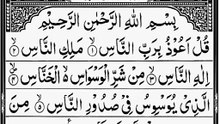 بِسْمِ اللّٰهِ الرَّحْمٰنِ الرَّحِيْمِ
قُلْ اَعُوْذُ بِرَبِّ النَّاسِ ۝١ مَلِكِ النَّاسِ ۝٢
اِلٰهِ النَّاسِ ۝٣ مِنْ شَرِّ الْوَسْوَاسِ ۙ الْخَنَّاسِ ۝٤
الَّذِيْ يُوَسْوِسُ فِيْ صُدُوْرِ النَّاسِ ۝٥